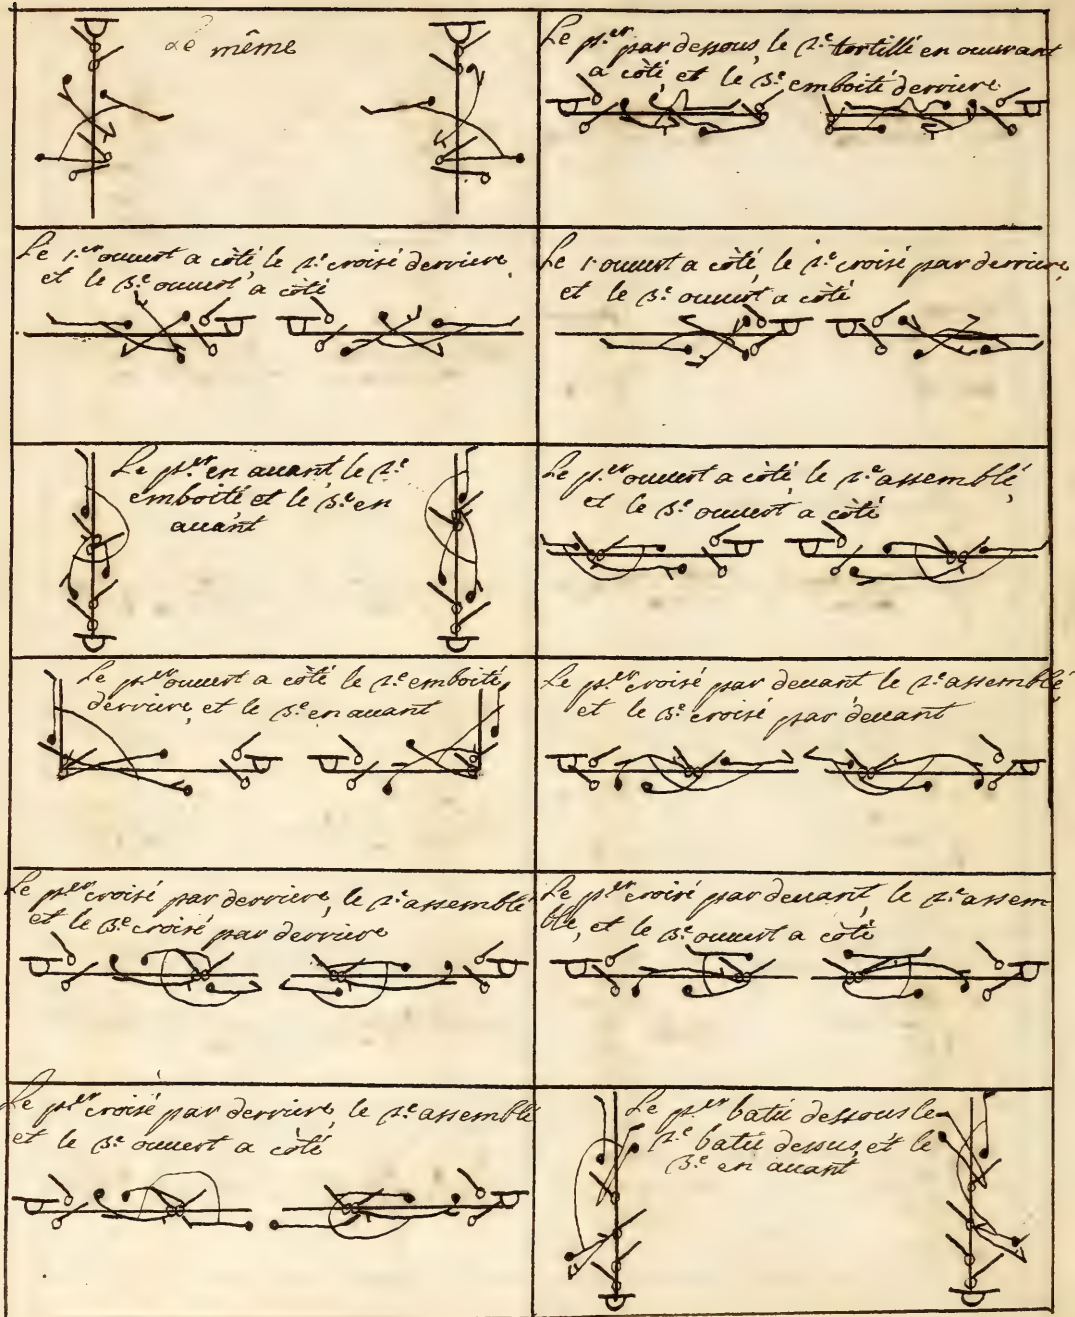 Le même
Le p.er par dessous, le 2.e tortillé en ouurant
a côté, et le 3.e emboité derriere
Le 1.er ouuert a côté, le 2.e croisé derriere,
et le 3.e ouuert a côté
Le 1 ouuert a côté, le 2.e croisé par derriere,
et le 3.e ouuert a côté
Le p.er en auant, le 2.e
emboité et le 3.e en
auant
Le p.er ouuert a côté, le 2.e assemblé,
et le 3.e ouuert a côté
Le p.er ouuert a côté le 2.e emboité,
derriere, et le 3.e en auant
Le p.er croisé par deuant le 2.e assemblé
et le 3.e croisé par deuant
Le p.er croisé par derriere, le 2.e assemblé
et le 3.e croisé par derriere
Le p.er croisé par deuant, le 2.e assem
blé, et le 3.e ouuert a côté
Le p.er croisé par derriere, le 2.e assemblé
et le 3.e ouuert a côté
Le p.er batu dessous le
2.e batu dessus, et le
3.e en auant